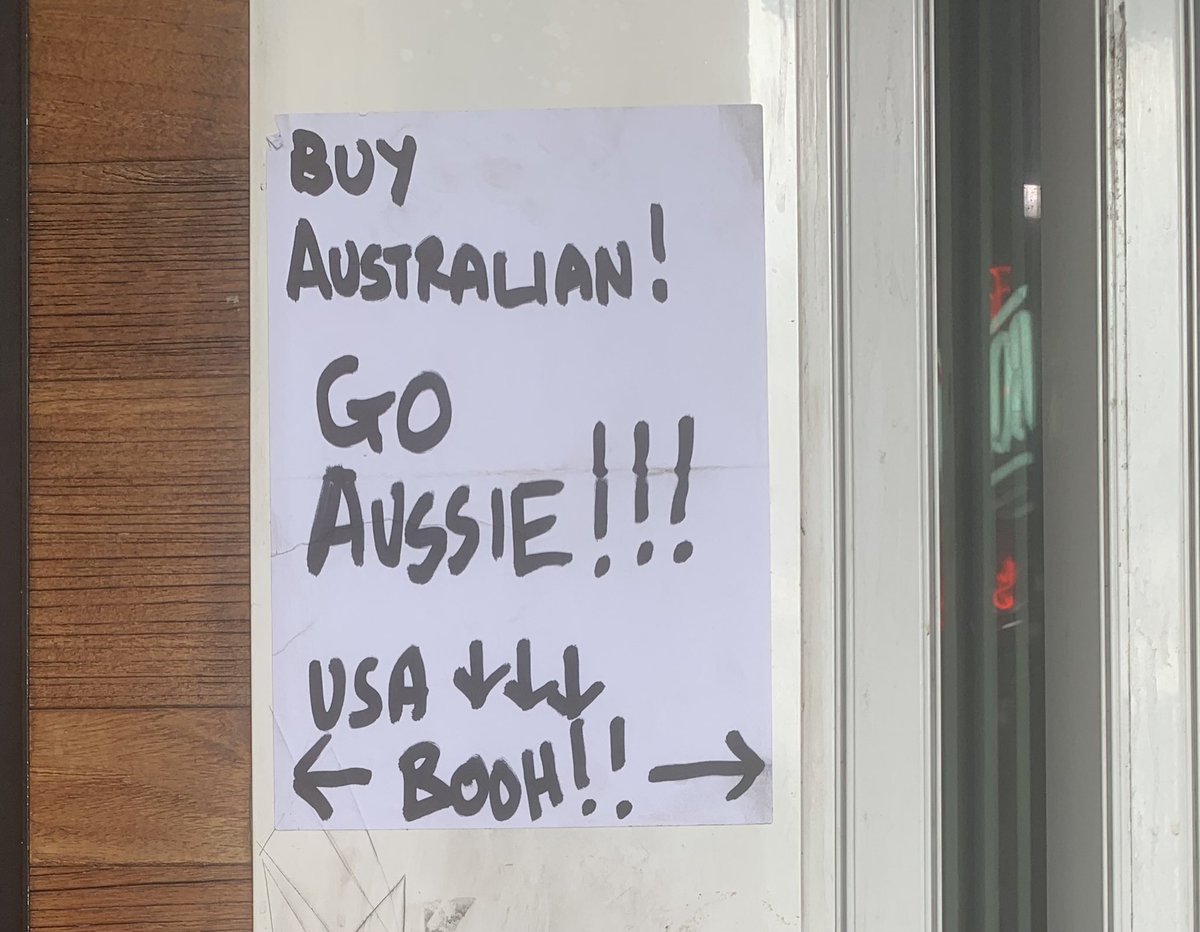 BUY
AUSTRALIAN!
GO
AUSSIE!!!
USA ↓↓↓
← BOOH!! →